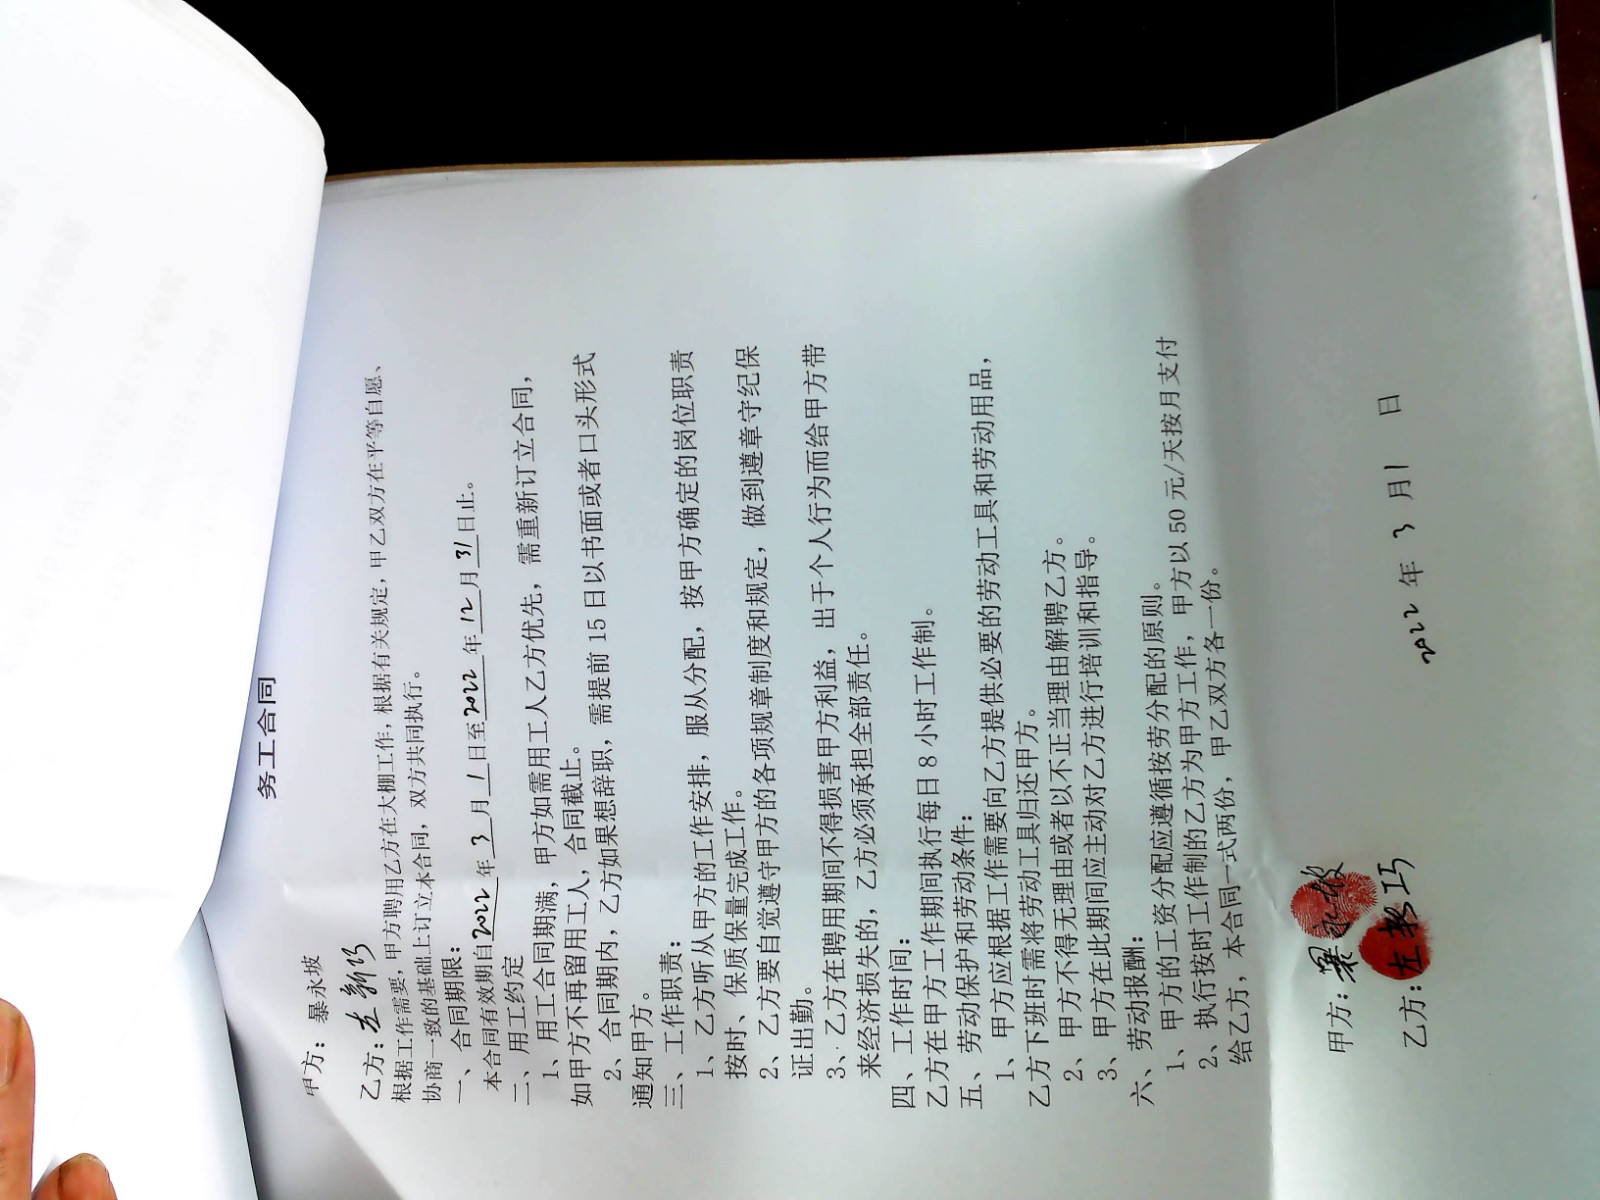 务工合同
甲方：暴永坡
乙方：左新巧
根据工作需要，甲方聘用乙方在大棚工作，根据有关规定，甲乙双方在平等自愿、
协商一致的基础上订立本合同，双方共同执行。
一、合同期限：
本合同有效期自2022年3月1日至2022年12月31日止。
二、用工约定
1、用工合同期满，甲方如需用工人乙方优先，需重新订立合同，
如甲方不再留用工人，合同截止。
2、合同期内，乙方如果想辞职，需提前15日以书面或者口头形式
通知甲方。
三、工作职责：
1、乙方听从甲方的工作安排，服从分配，按甲方确定的岗位职责
按时、保质保量完成工作。
2、乙方要自觉遵守甲方的各项规章制度和规定，做到遵章守纪保
证出勤。
3、乙方在聘用期间不得损害甲方利益，出于个人行为而给甲方带
来经济损失的，乙方必须承担全部责任。
四、工作时间：
乙方在甲方工作期间执行每日8小时工作制。
五、劳动保护和劳动条件：
1、甲方应根据工作需要向乙方提供必要的劳动工具和劳动用品，
乙方下班时需将劳动工具归还甲方。
2、甲方不得无理由或者以不正当理由解聘乙方。
3、甲方在此期间应主动对乙方进行培训和指导。
六、劳动报酬：
1、甲方的工资分配应遵循按劳分配的原则。
2、执行按时工作制的乙方为甲方工作，甲方以50元/天按月支付
给乙方，本合同一式两份，甲乙双方各一份。
甲方：暴永坡
乙方：左新巧
2022年3月1日